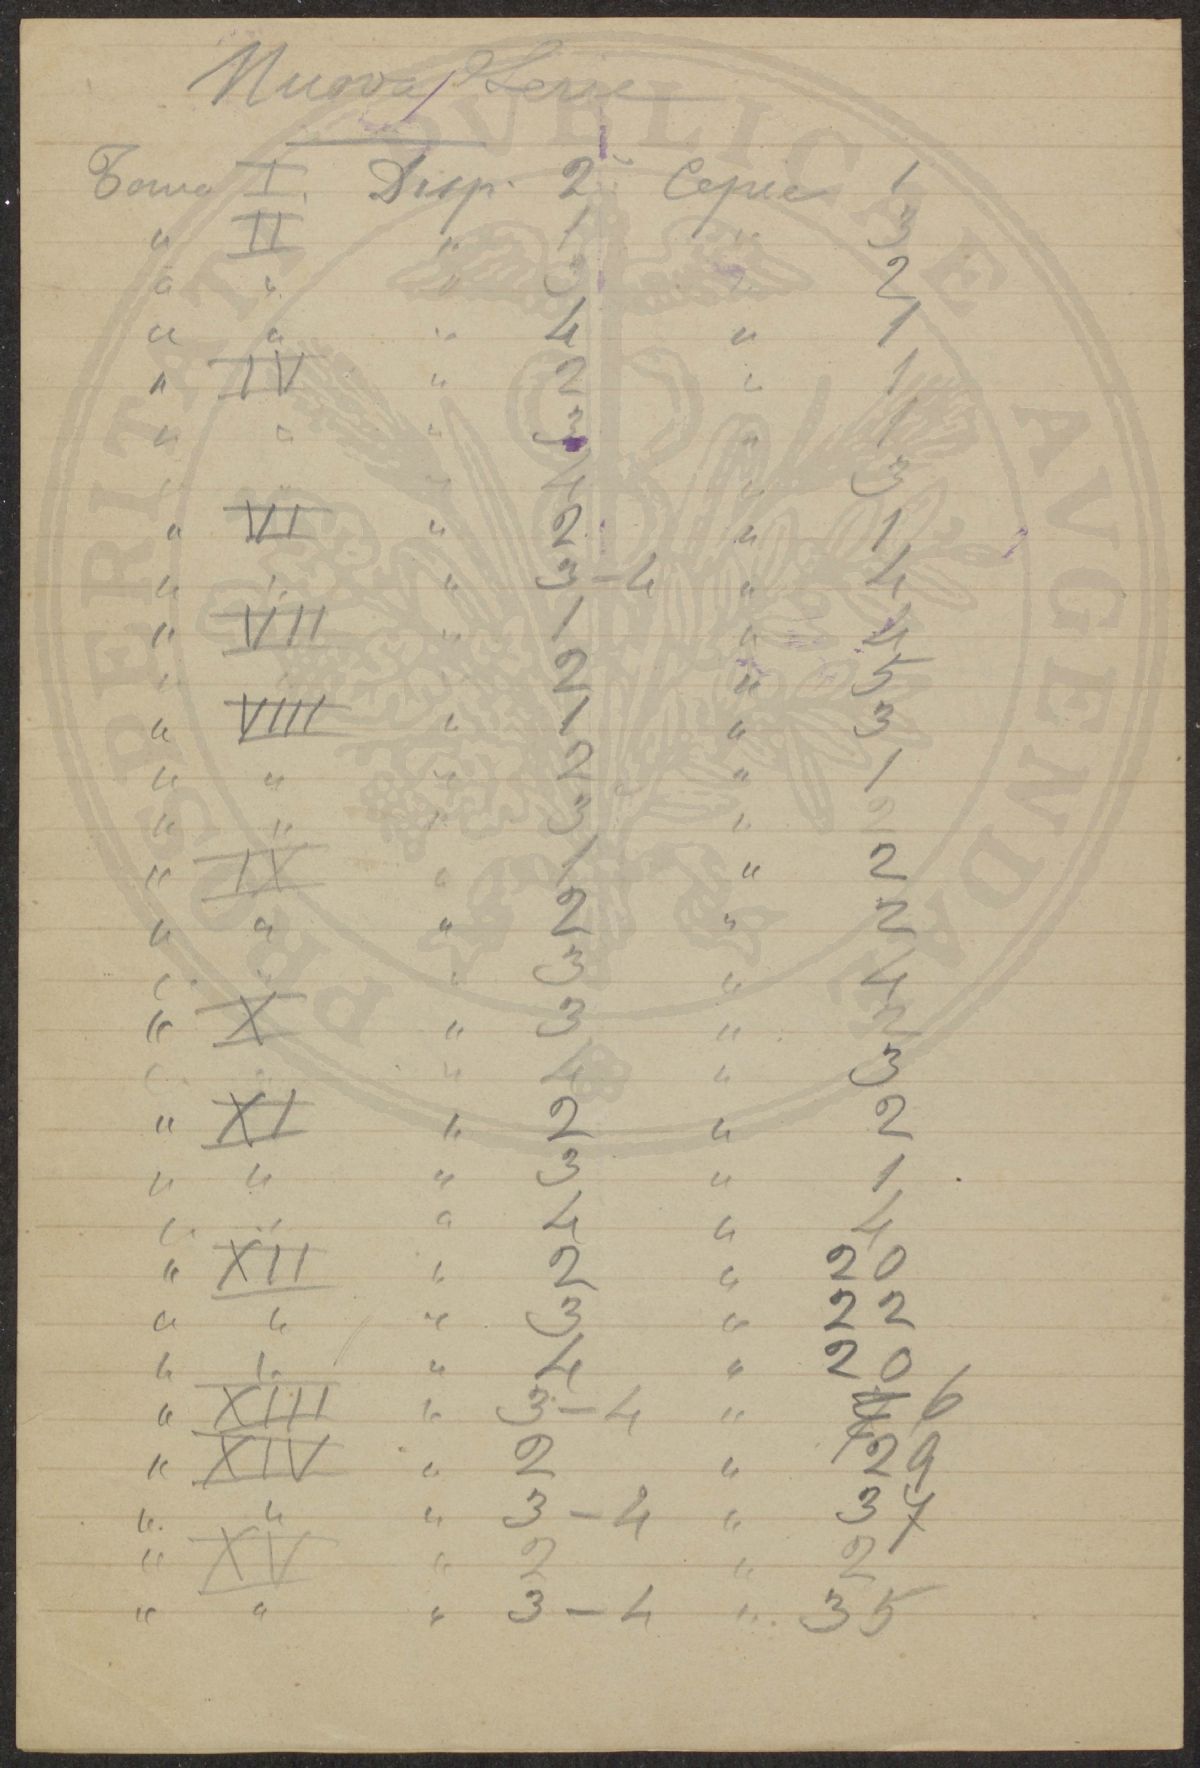 Nuova Serie
Tomo I. Disp. 2 Copie 1
" II " 1 " 3
" " " 3 " 2
" " " 4 " 1
" IV " 2 " 1
" " " 3 " 1
" " " 4 " 3
" VI " 2 " 1
" " " 3-4 " 4
" VII " 1 " 4
" " " 2 " 5
" VIII " 1 " 3
" " " 2 " 1
" " " 3 " 2
" IX " 1 " 2
" " " 2 " 2
" " " 3 " 4
" X " 3 " 2
" " " 4 " 3
" XI " 2 " 2
" " " 3 " 1
" " " 4 " 4
" XII " 2 " 20
" " " 3 " 22
" " " 4 " 20
" XIII " 3-4 " 6
" XIV " 2 " 29
" " " 3-4 " 37
" XV " 2 " 2
" " " 3-4 " 35
PROSPERITATI PVBLICAE AVGENDAE